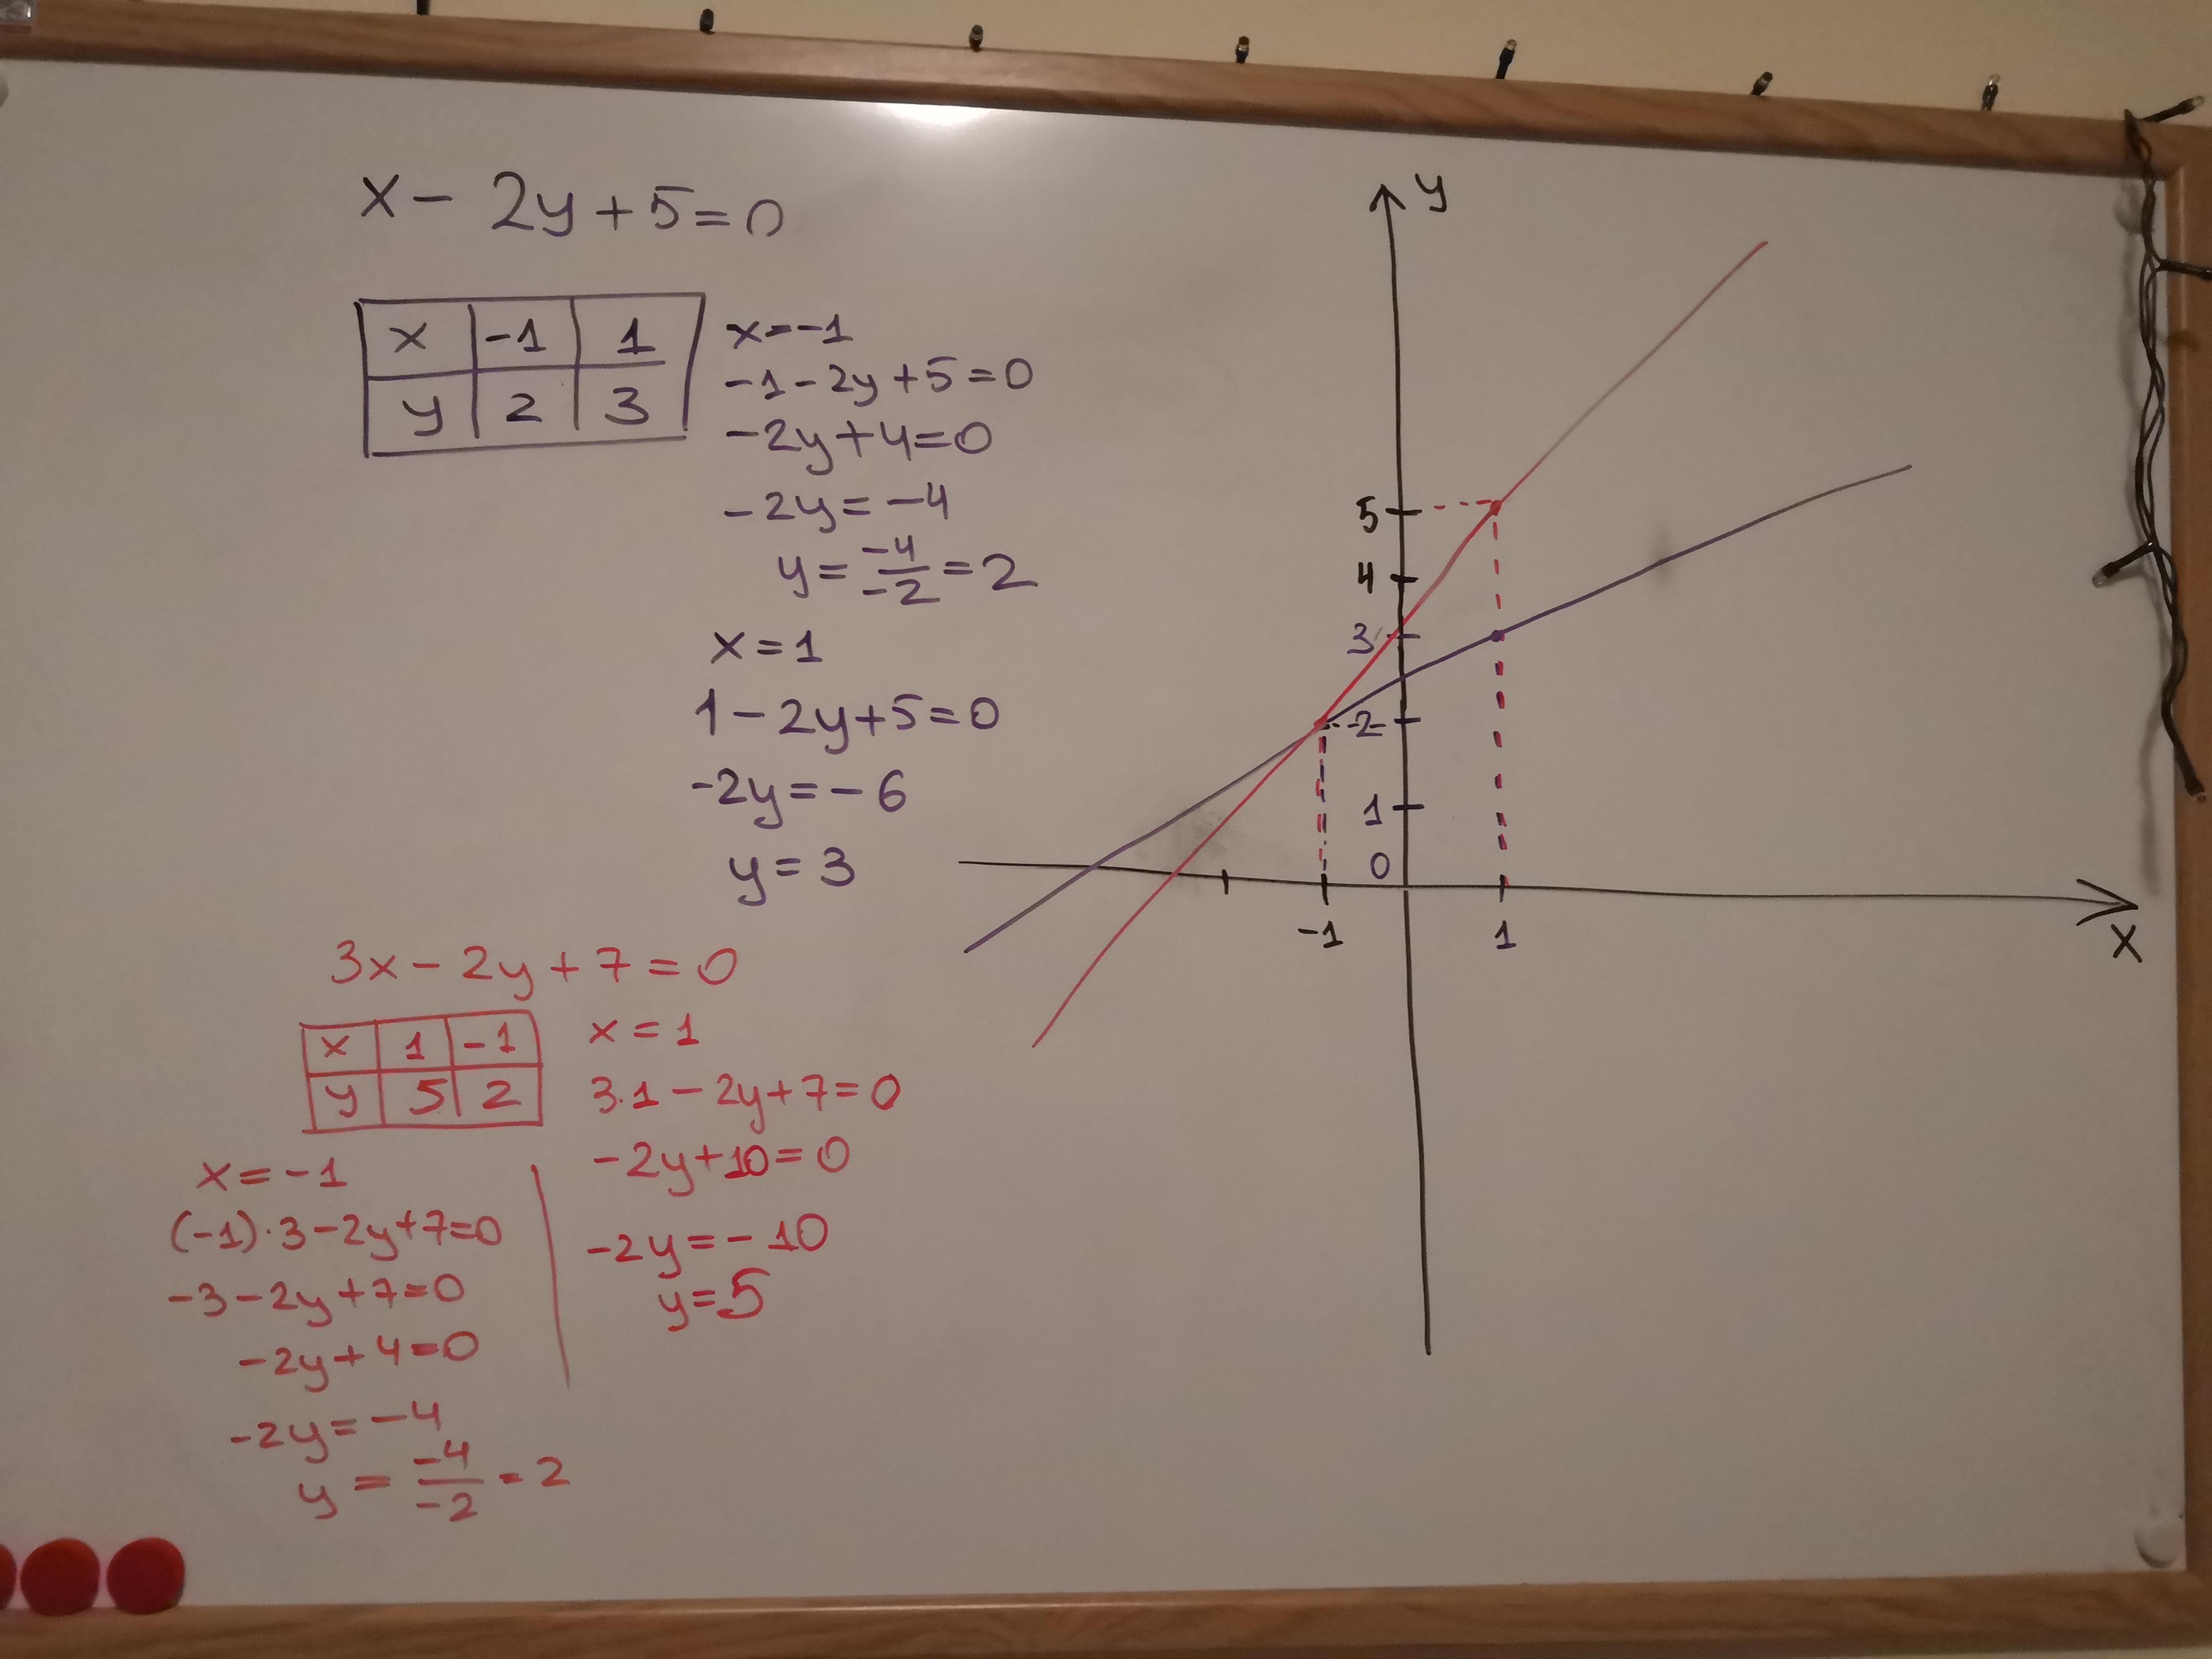 x - 2y + 5 = 0
x -1 1
y 2 3
x = -1
-1 - 2y + 5 = 0
-2y + 4 = 0
-2y = -4
y = -4/-2 = 2
x = 1
1 - 2y + 5 = 0
-2y = -6
y = 3
3x - 2y + 7 = 0
x 1 -1
y 5 2
x = 1
3·1 - 2y + 7 = 0
-2y + 10 = 0
-2y = -10
y = 5
x = -1
(-1)·3 - 2y + 7 = 0
-3 - 2y + 7 = 0
-2y + 4 = 0
-2y = -4
y = -4/-2 = 2
y
5
4
3
2
1
0
-1 1
x